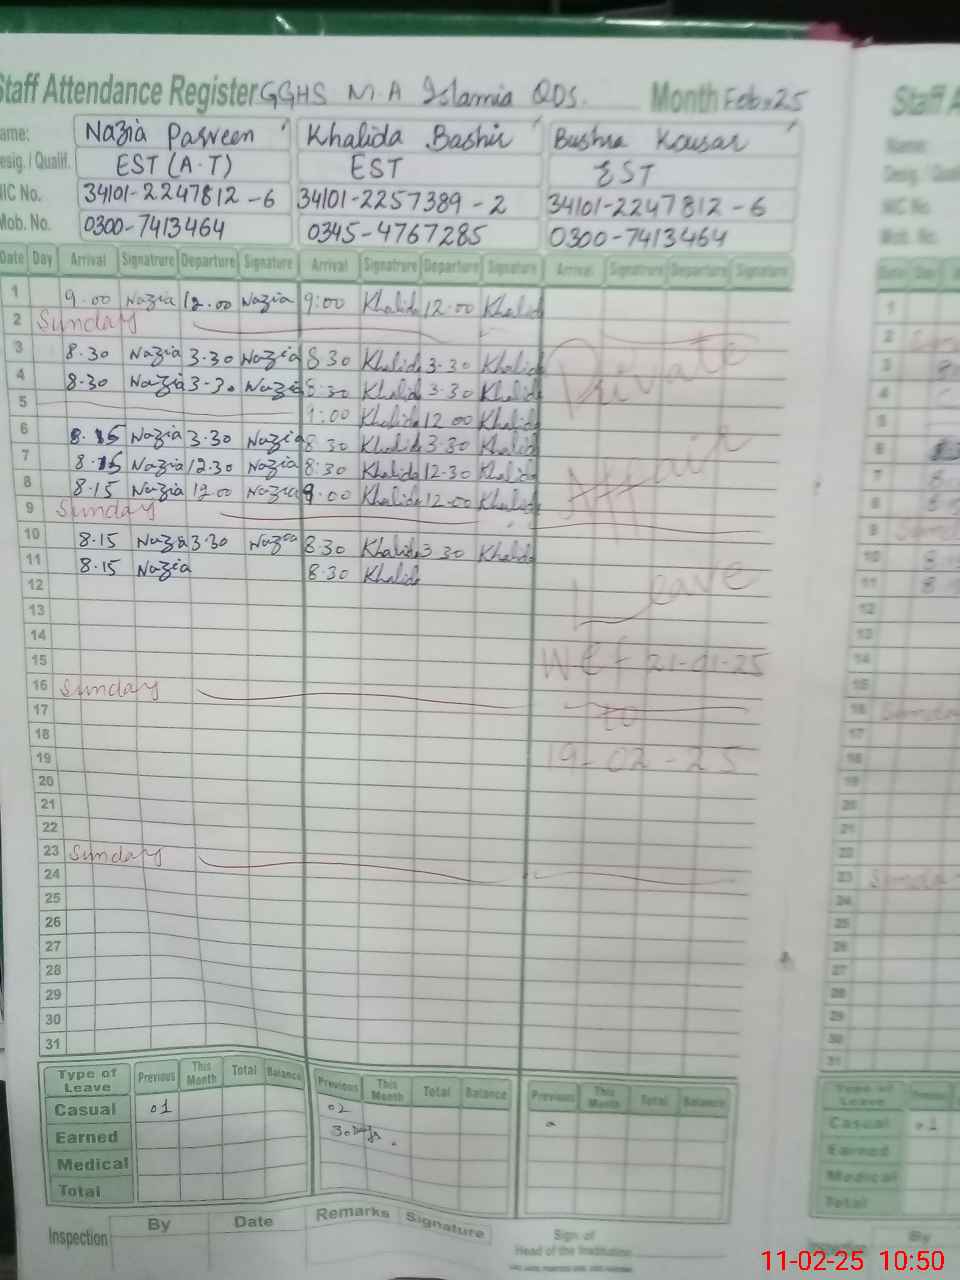 Staff Attendance Register GGHS M.A Islamia QDS. Month Feb-25
Name: Nazia Parveen Khalida Bashir Bushra Kousar
Desig. / Qualif. EST (A-T) EST EST
NIC No. 34101-2247812-6 34101-2257389-2 34101-2247812-6
Mob. No. 0300-7413464 0345-4767285 0300-7413464
Date Day Arrival Signatrure Departure Signature Arrival Signatrure Departure Signature Arrival Signatrure Departure Signature
1 9.00 Nazia 12.00 Nazia 9:00 Khalida 12.00 Khalida
2 Sunday
3 8.30 Nazia 3.30 Nazia 8 30 Khalida 3-30 Khalida Private
4 8.30 Nazia 3-30 Nazia 8:30 Khalida 3.30 Khalida
5 1:00 Khalida 12 00 Khalida
6 8.15 Nazia 3.30 Nazia 8 30 Khalida 3.30 Khalida Affair
7 8.15 Nazia 12.30 Nazia 8:30 Khalida 12-30 Khalida
8 8.15 Nazia 12.00 Nazia 9.00 Khalida 12-00 Khalida
9 Sunday
10 8.15 Nazia 3.30 Nazia 8 30 Khalida 3 30 Khalida
11 8.15 Nazia 8.30 Khalida Leave
12
13
14
15 W.E.f 21-01-25
16 Sunday
17 to
18
19 19-02-25
20
21
22
23 Sunday
24
25
26
27
28
29
30
31
Type of Leave Previous This Month Total Balance Previous This Month Total Balance Previous This Month Total Balance
Casual 01 02
Earned
Medical
Total
Inspection By Date Remarks Signature Sign. of Head of the Institution
Staff A
Name:
Desig. / Qualif
NIC No.
Mob. No.
1
2
3
4
5
6
7
8
9
10
11
12
13
14
15
16 Sunday
17
18
19
20
21
22
23 Sunda
24
25
26
27
28
29
30
31
Type of Leave
Casual 01
Earned
Medical
Total
Inspection By
11-02-25 10:50